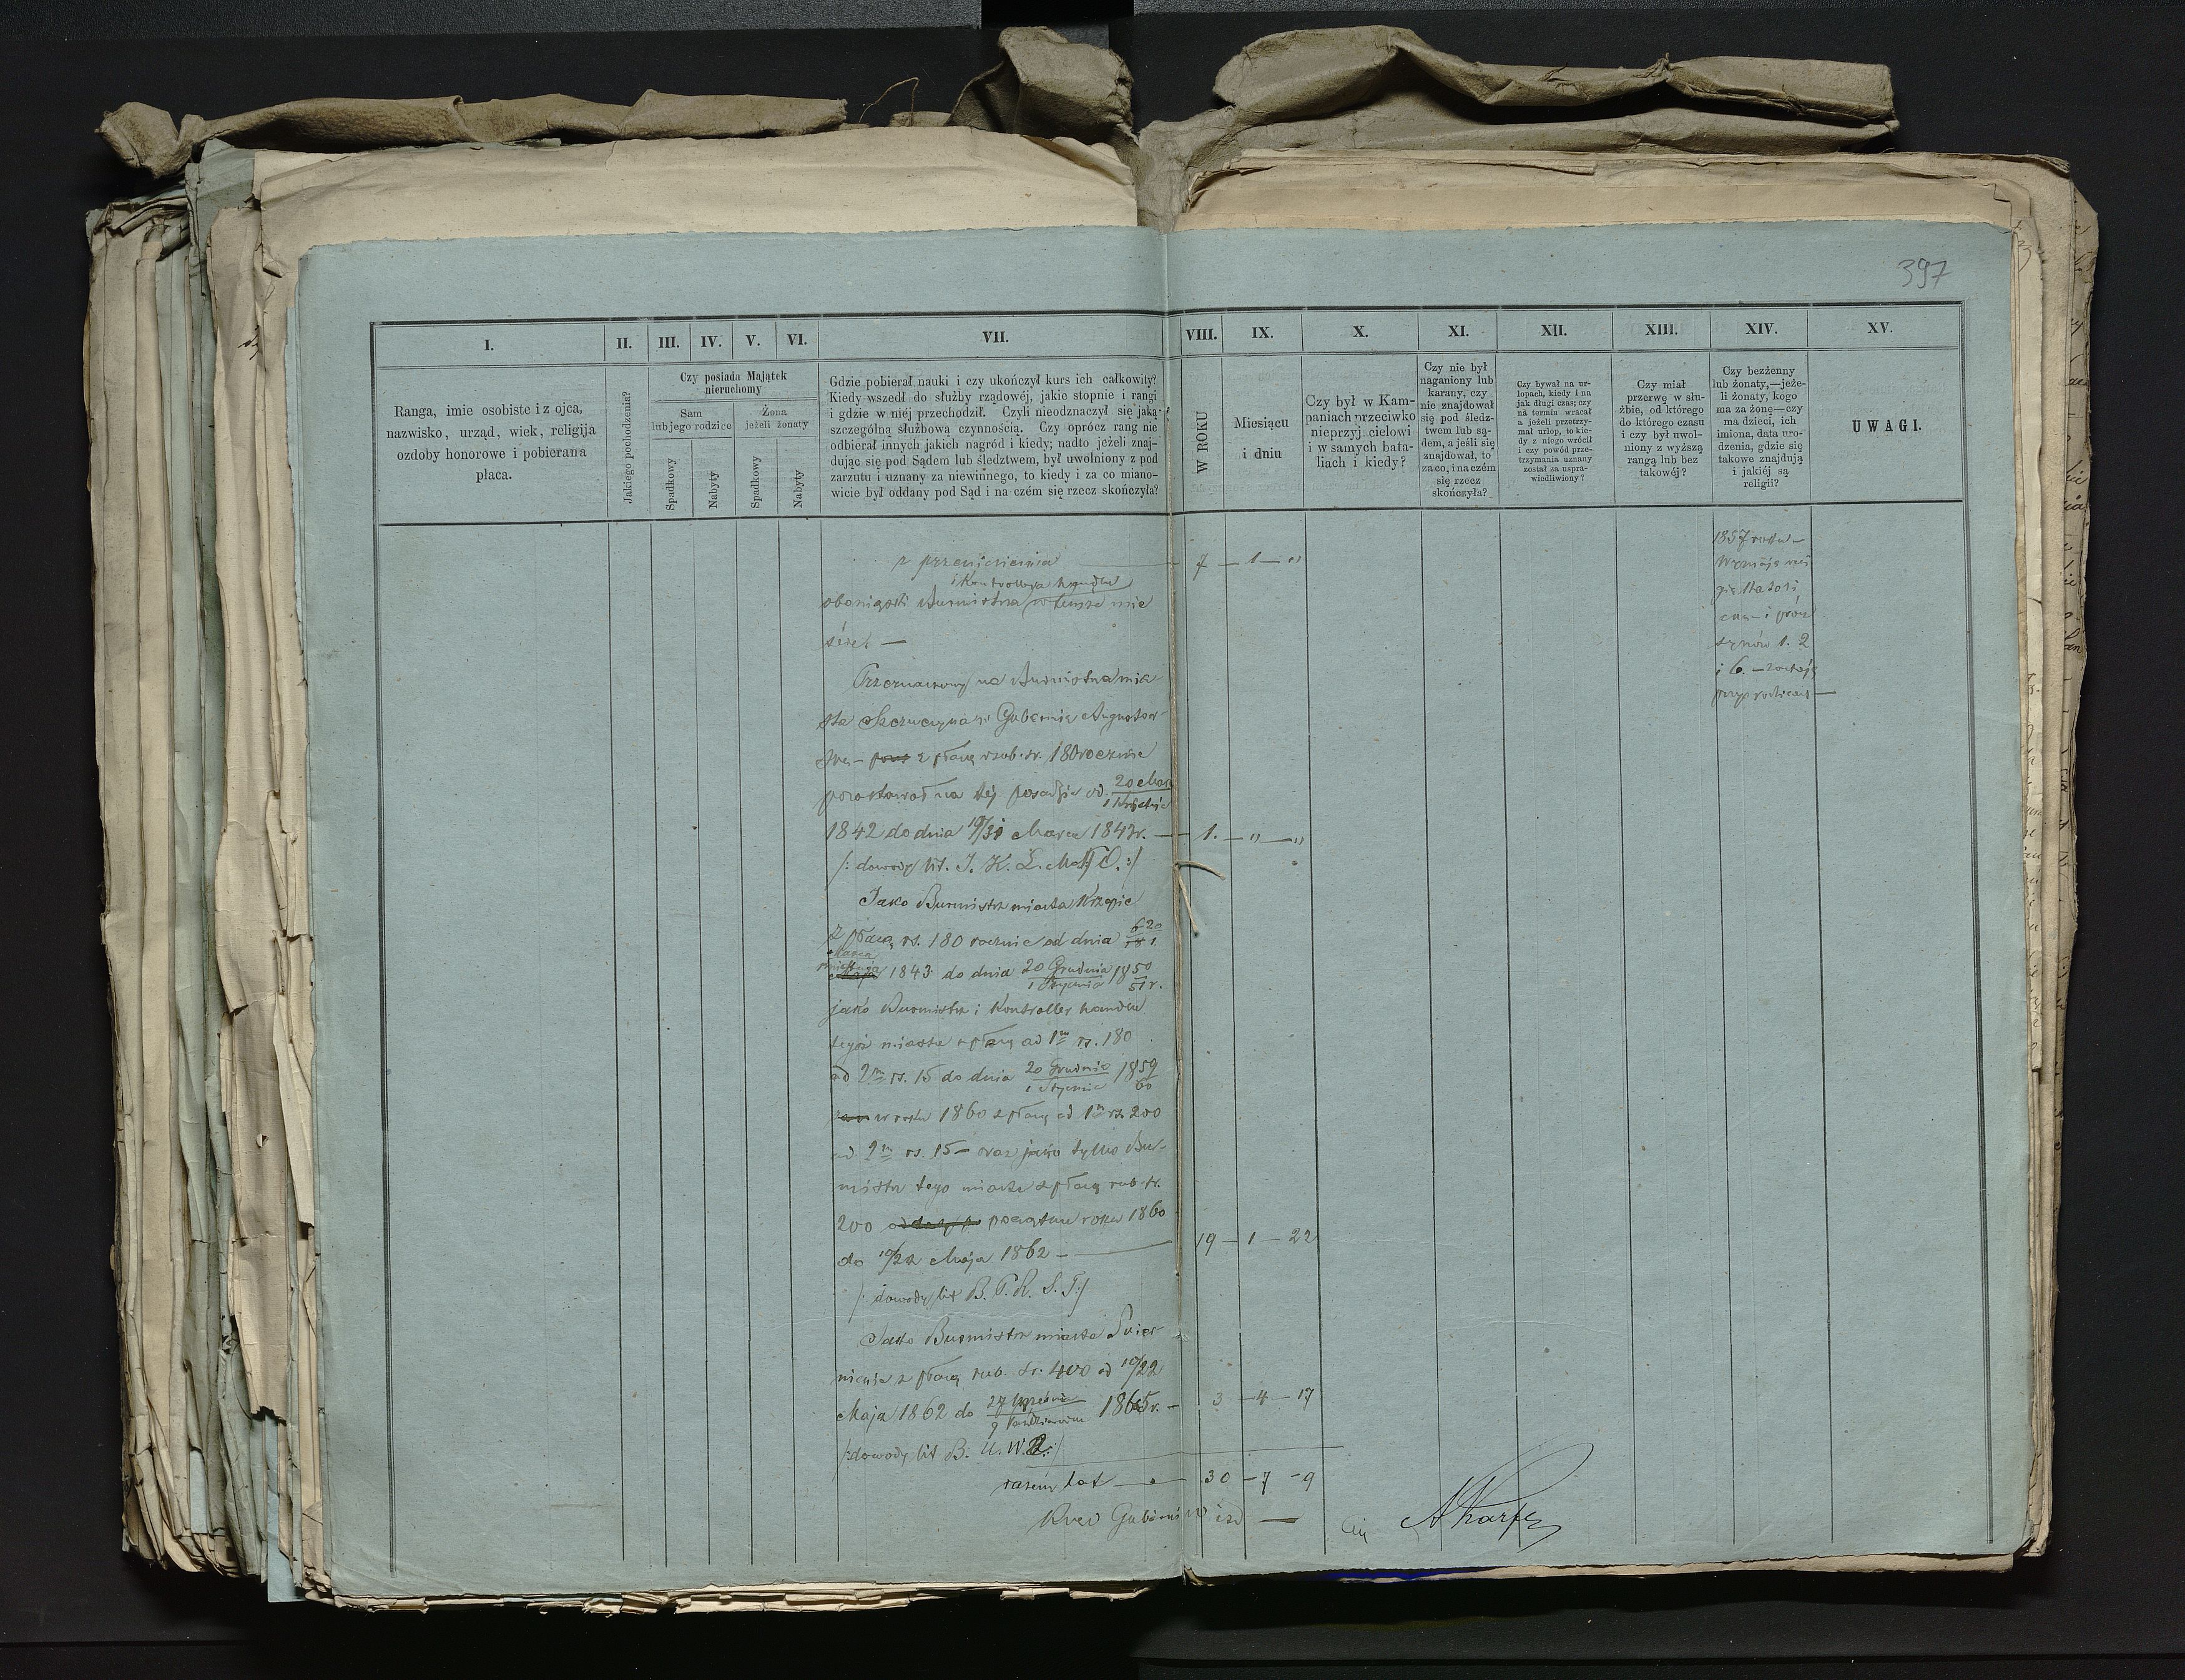 397
I. II. III. IV. V. VI. VII. VIII. IX. X. XI. XII. XIII. XIV. XV.
Ranga, imie osobiste i z ojca,
nazwisko, urząd, wiek, religija
ozdoby honorowe i pobierana
płaca.
Jakiego pochodzenia?
Czy posiada Majątek
nieruchomy
Sam
lub jego rodzice
Żona
jeżeli żonaty
Spadkowy
Nabyty
Spadkowy
Nabyty
Gdzie pobierał nauki i czy ukończył kurs ich całkowity?
Kiedy wszedł do służby rządowéj, jakie stopnie i rangi
i gdzie w niéj przechodził. Czyli nieodznaczył się jaką
szczególną służbową czynnością. Czy oprócz rang nie
odbierał innych jakich nagród i kiedy; nadto jeżeli znaj-
dując się pod Sądem lub śledztwem, był uwolniony z pod
zarzutu i uznany za niewinnego, to kiedy i za co miano-
wicie był oddany pod Sąd i na czém się rzecz skończyła?
W ROKU
Miesiącu
i dniu
Czy był w Kam-
paniach przeciwko
nieprzyjacielowi
i w samych bata-
liach i kiedy?
Czy nie był
naganiony lub
karany, czy
nie znajdował
się pod śledz-
twem lub są-
dem, a jeśli się
znajdował, to
za co, i na czém
się rzecz
skończyła?
Czy bywał na ur-
lopach, kiedy i na
jak długi czas; czy
na termin wracał
a jeżeli przetrzy-
mał urlop, to kie-
dy z niego wrócił
i czy powód prze-
trzymania uznany
został za uspra-
wiedliwiony?
Czy miał
przerwę w słu-
żbie, od którego
do którego czasu
i czy był uwol-
niony z wyższą
rangą lub bez
takowéj?
Czy bezżenny
lub żonaty,—jeże-
li żonaty, kogo
ma za żonę—czy
ma dzieci, ich
imiona, data uro-
dzenia, gdzie się
takowe znajdują
i jakiéj są
religii?
UWAGI.
z przeniesienia — 7 — 1 — "
i Kontrollera handlu
obowiązki Burmistrza w temże mie
ście —
Przeznaczony na Burmistrza mia
sta Szczuczyna w Gubernii Augustow
z płacą rub. sr. 180 rocznie
pozostawał na tej posadzie od 20 Marca
1 Kwietnia
1842 do dnia 19/31 Marca 1843 r. — 1. — " — "
/: dowody lit. J. K. L. M. O. :/
Jako Burmistrz miasta Krzepic
z płacą rs. 180 rocznie od dnia
1843 do dnia 20 Grudnia 1850
1 Stycznia 51 r.
jako Burmistrz i Kontroller handlu
tegoż miasta z płacą ad 1m rs. 180
ad 2m rs. 15 do dnia 20 Grudnia 1859
1 Stycznia 60
w roku 1860 z płacą ad 1m rs. 200
ad 2m rs. 15 — oraz jako tylko Bur-
mistrz tego miasta z płacą rub. sr.
200 początku roku 1860
do 10/22 Maja 1862 — 19 — 1 — 22
/: dowody lit B. P. R. S. T :/
Jako Burmistrz miasta
z płacą rub. sr. 400 od 10/22
Maja 1862 do 27 Września 1865 r. — 3 — 4 — 17
9 Października
/: dowody lit B. U. W. :/
razem lat — 30 — 7 — 9
1857 roku —
Wyznają reli
gię Katoli
cką — i prócz
synów 1. 2
i 6. — zostają
przy rodzicach —